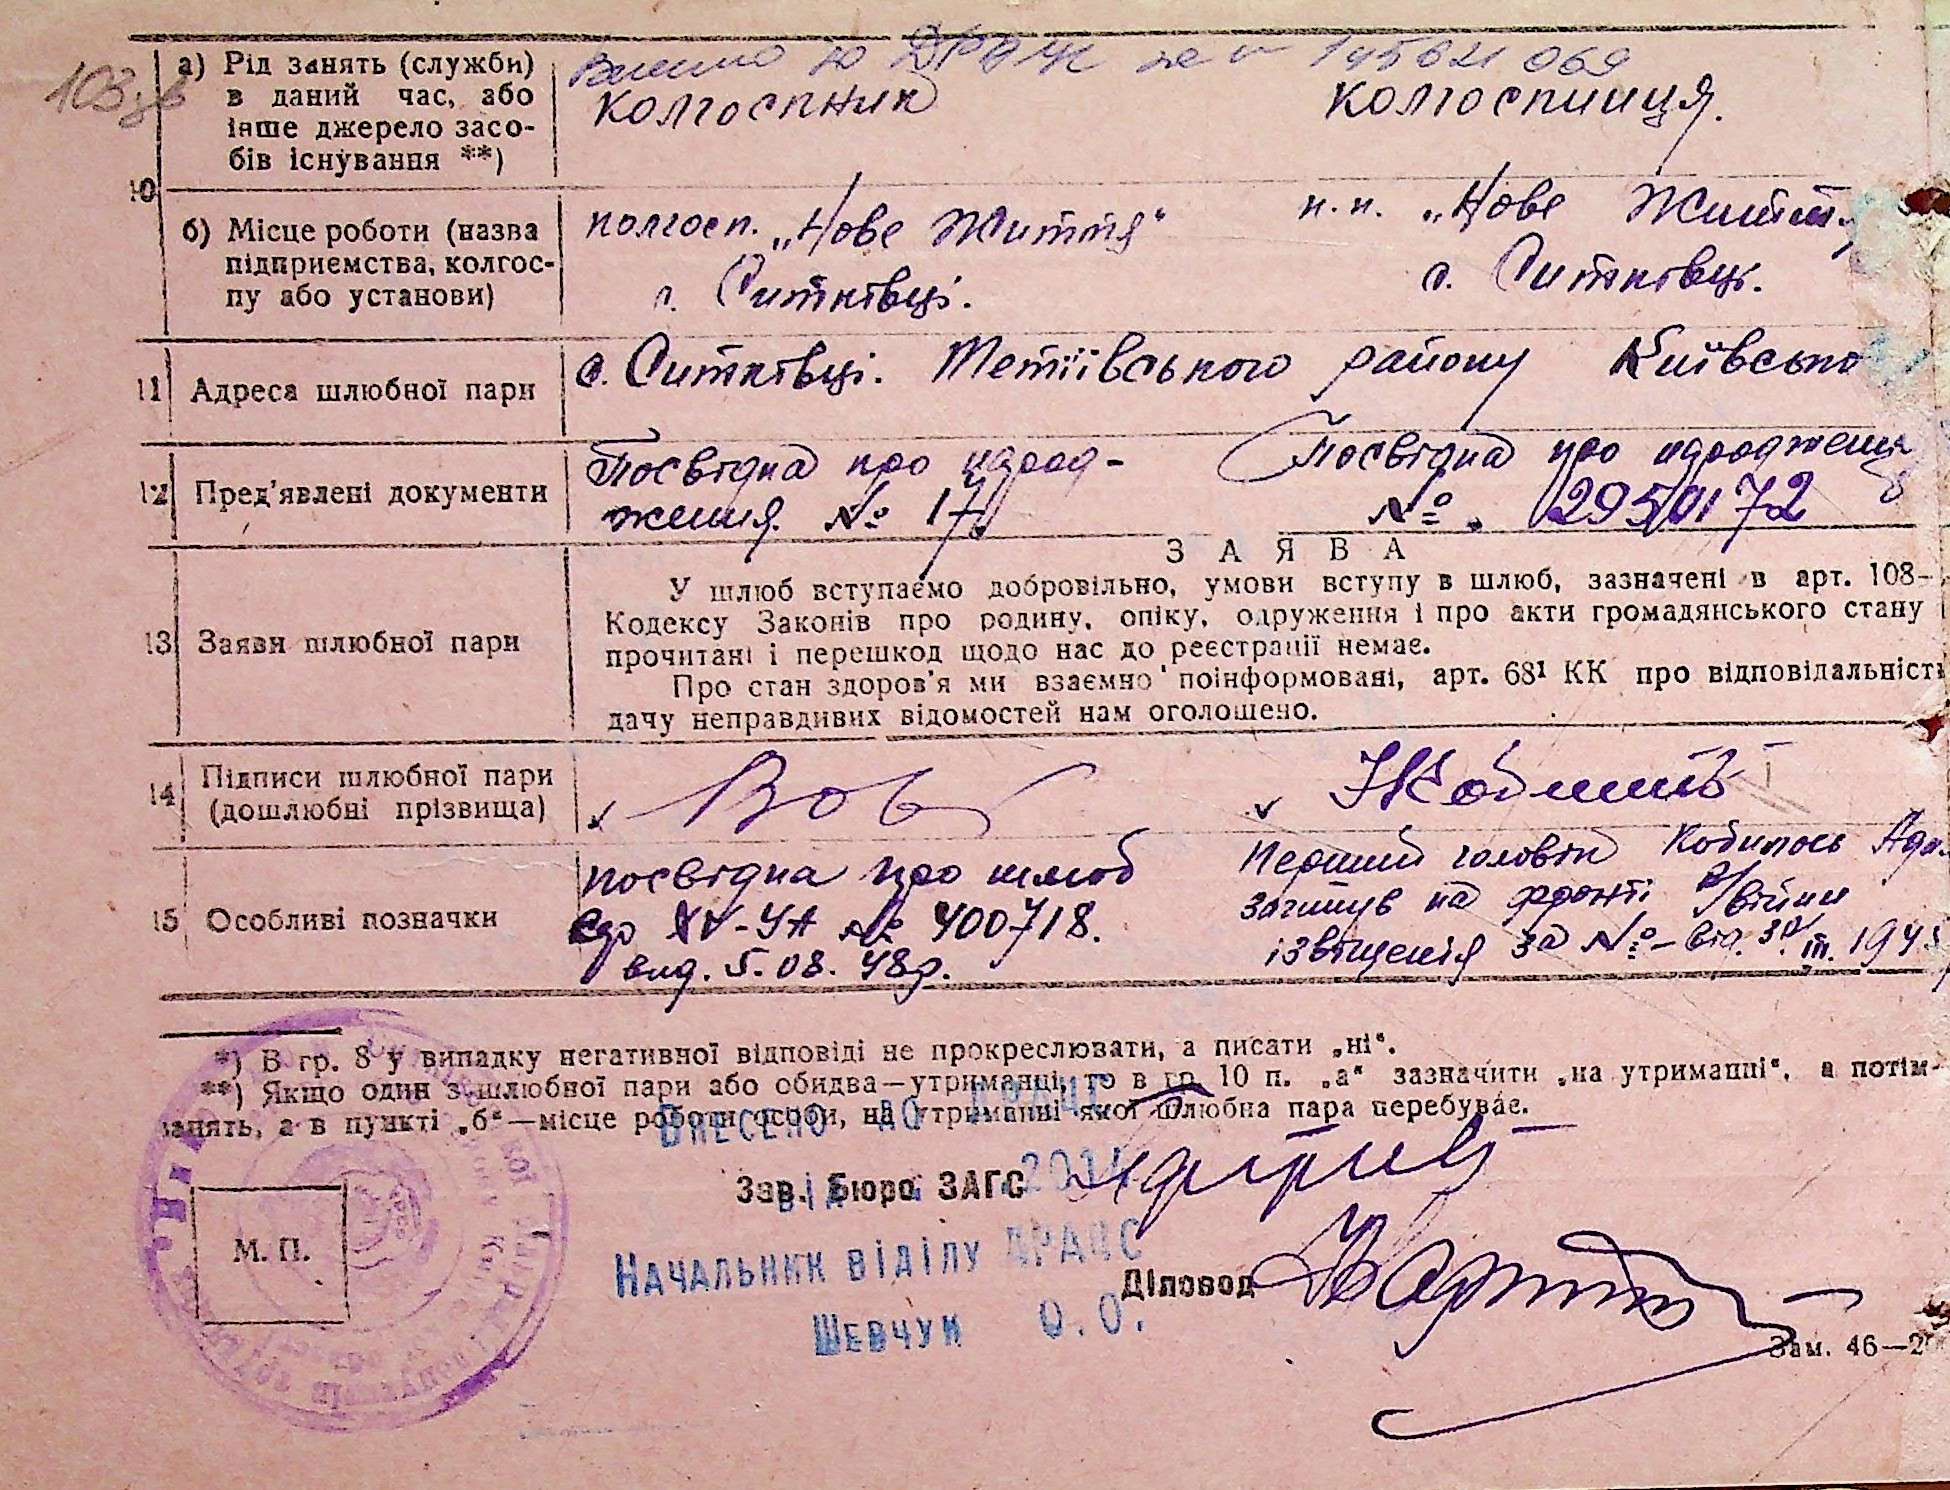 а) Рід занять (служби)
в даний час, або
інше джерело засо-
бів існування **)
колгоспник колгоспниця.
10
б) Місце роботи (назва
підприємства, колгос-
пу або установи)
колгосп. „Нове Життя“ к.п. „Нове Життя
с. Ситківці. с. Ситківці.
11 Адреса шлюбної пари
с. Ситківці. Тетіївського району Київсько
12 Пред'явлені документи
Посвідка про народ- Посвідка про народження
ження. № 17 №. 2950172
13 Заяви шлюбної пари
ЗАЯВА
У шлюб вступаємо добровільно, умови вступу в шлюб, зазначені в арт. 108-
Кодексу Законів про родину, опіку, одруження і про акти громадянського стану
прочитані і перешкод щодо нас до реєстрації немає.
Про стан здоров'я ми взаємно поінформовані, арт. 68¹ КК про відповідальність
дачу неправдивих відомостей нам оголошено.
14 Підписи шлюбної пари
(дошлюбні прізвища)
Вов
15 Особливі позначки
посвідка про шлюб Перший чоловік
№ 400718. загинув на фронті в/війни
вид. 5.08.48р. ізвіщенія за №- від. 30/III. 194
*) В гр. 8 у випадку негативної відповіді не прокреслювати, а писати „ні“.
**) Якщо один з шлюбної пари або обидва—утриманці, то в гр. 10 п. „а“ зазначити „на утриманні“, а потім
занять, а в пункті „б“—місце роботи особи, на утриманні якої шлюбна пара перебуває.
Внесено до ДРАЦС
Зав. Бюро ЗАГС
від
М. П.
Начальник відділу ДРАЦС
Діловод
Шевчук О.О.
Зам. 46—2